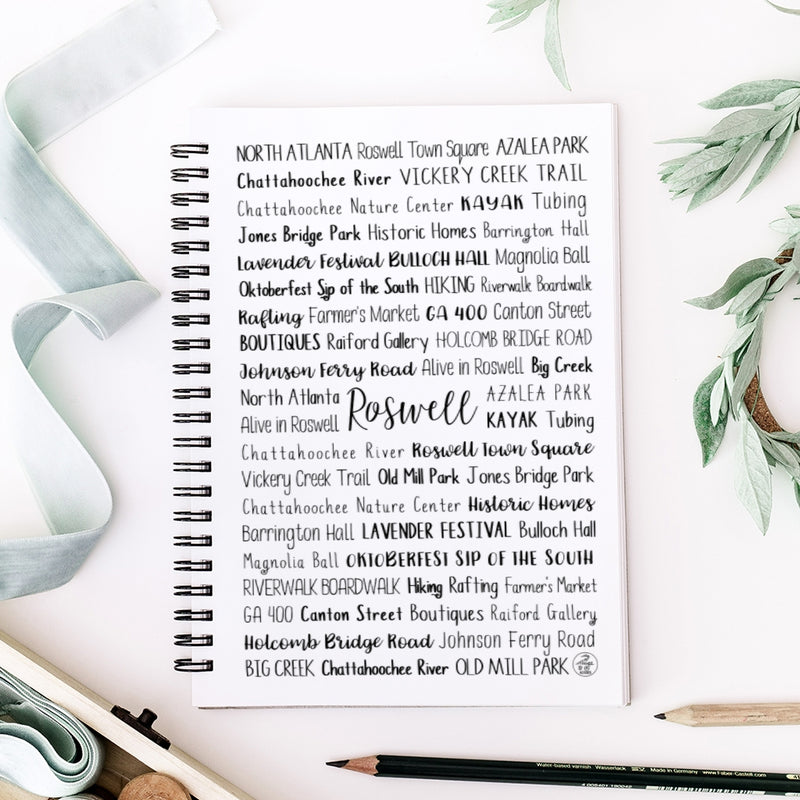 NORTH ATLANTA Roswell Town Square AZALEA PARK
Chattahoochee River VICKERY CREEK TRAIL
Chattahoochee Nature Center KAYAK Tubing
Jones Bridge Park Historic Homes Barrington Hall
Lavender Festival BULLOCH HALL Magnolia Ball
Oktoberfest Sip of the South HIKING Riverwalk Boardwalk
Rafting Farmer's Market GA 400 Canton Street
BOUTIQUES Raiford Gallery HOLCOMB BRIDGE ROAD
Johnson Ferry Road Alive in Roswell Big Creek
North Atlanta
Alive in Roswell
Roswell
AZALEA PARK
KAYAK Tubing
Chattahoochee River Roswell Town Square
Vickery Creek Trail Old Mill Park Jones Bridge Park
Chattahoochee Nature Center Historic Homes
Barrington Hall LAVENDER FESTIVAL Bulloch Hall
Magnolia Ball OKTOBERFEST SIP OF THE SOUTH
RIVERWALK BOARDWALK Hiking Rafting Farmer's Market
GA 400 Canton Street Boutiques Raiford Gallery
Holcomb Bridge Road Johnson Ferry Road
BIG CREEK Chattahoochee River OLD MILL PARK
Water-based varnish Wasserlack Made in Germany www.Faber-Castell.com